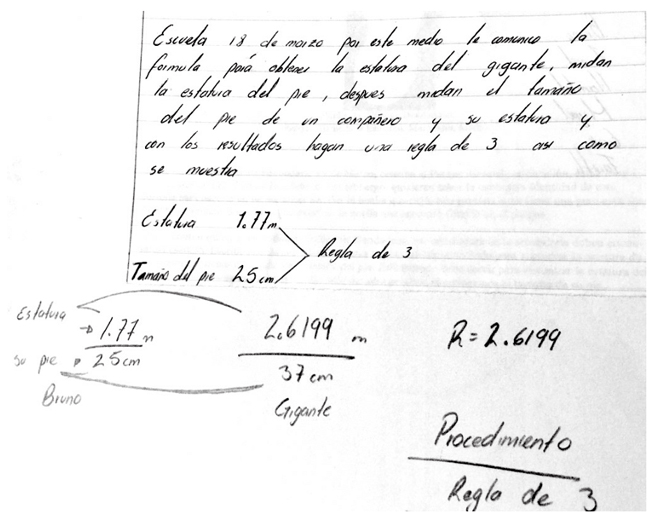 Escuela 18 de marzo por este medio le comunico la
formula para obtener la estatura del gigante, midan
la estatura del pie, despues midan el tamaño
del pie de un compañero y su estatura y
con los resultados hagan una regla de 3 asi como
se muestra
Estatura 1.77m
Regla de 3
Tamaño del pie 25cm
Estatura
1.77 m
su pie 25cm
Bruno
2.6199 m
37cm
Gigante
R=2.6199
Procedimiento
Regla de 3